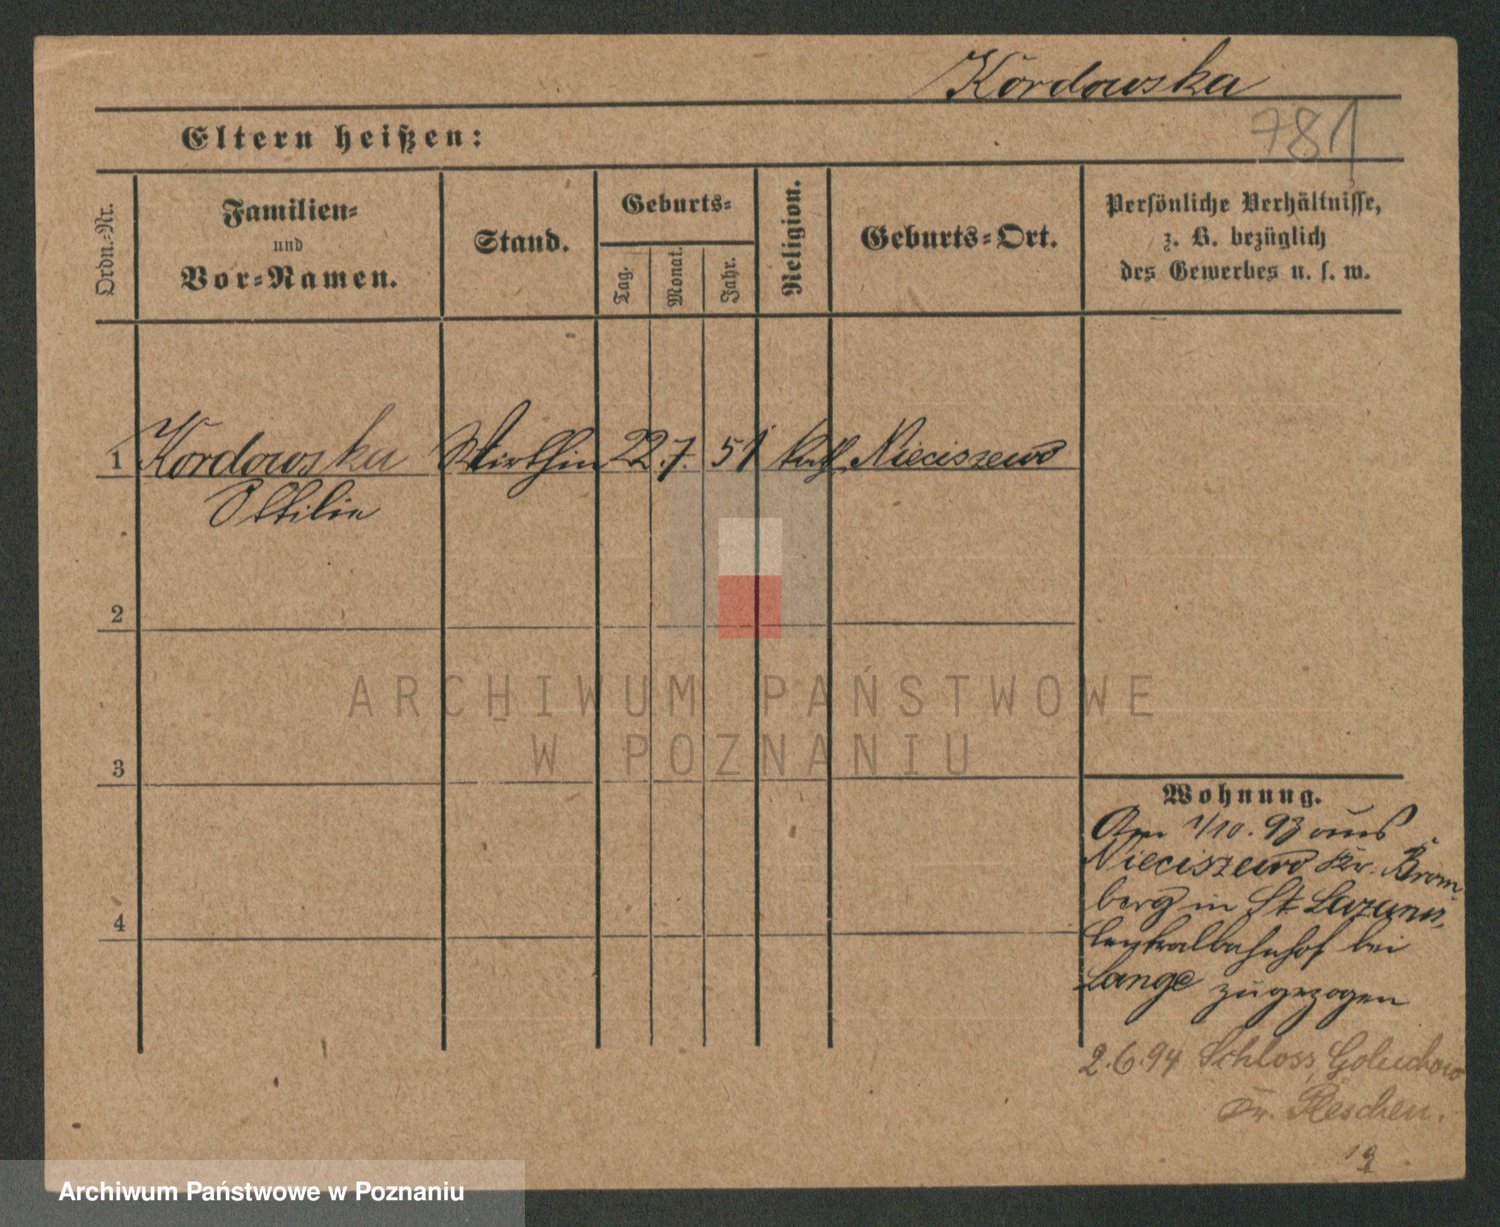 Kordowska
781
Eltern heißen:
Ordn.-Nr.
Familien-
und
Vor-Namen.
Stand.
Geburts-
Tag.
Monat.
Jahr.
Religion.
Geburts-Ort.
Persönliche Verhältnisse,
z. B. bezüglich
des Gewerbes u. s. w.
1 Kordowska Wirthin 22. 7. 51 kath. Nieciszewo
Ottilie
2
3
4
Wohnung.
Am 1/10. 93 aus
Nieciszewo Kr. Brom-
berg in St Lazarus,
Centralbahnhof bei
Lange zugezogen
2.6.94 Schloss Goluchow
Kr. Pleschen.
ARCHIWUM PAŃSTWOWE
W POZNANIU
Archiwum Państwowe w Poznaniu